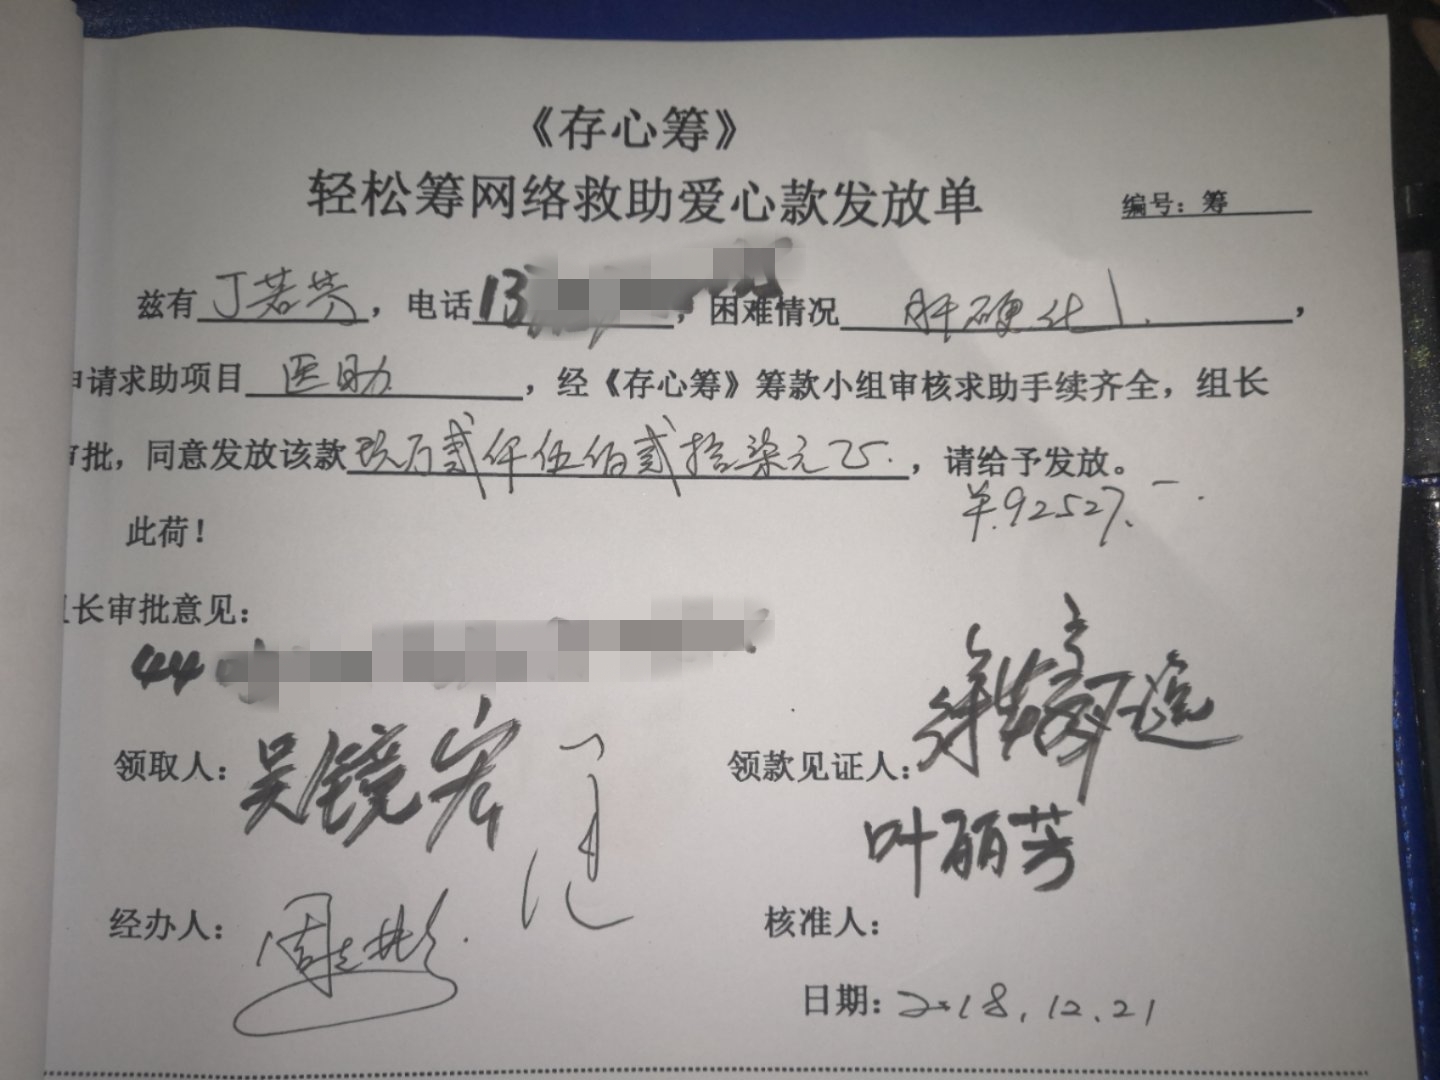 《存心筹》
轻松筹网络救助爱心款发放单
编号：筹
兹有丁若芬，电话13，困难情况肝硬化，
申请求助项目医助，经《存心筹》筹款小组审核求助手续齐全，组长
审批，同意发放该款玖万贰仟伍佰贰拾柒元正.，请给予发放。
￥92527.一.
此荷！
组长审批意见：
44
领取人：吴镜宏
领款见证人：
叶丽芳
经办人：
核准人：
日期：2018.12.21